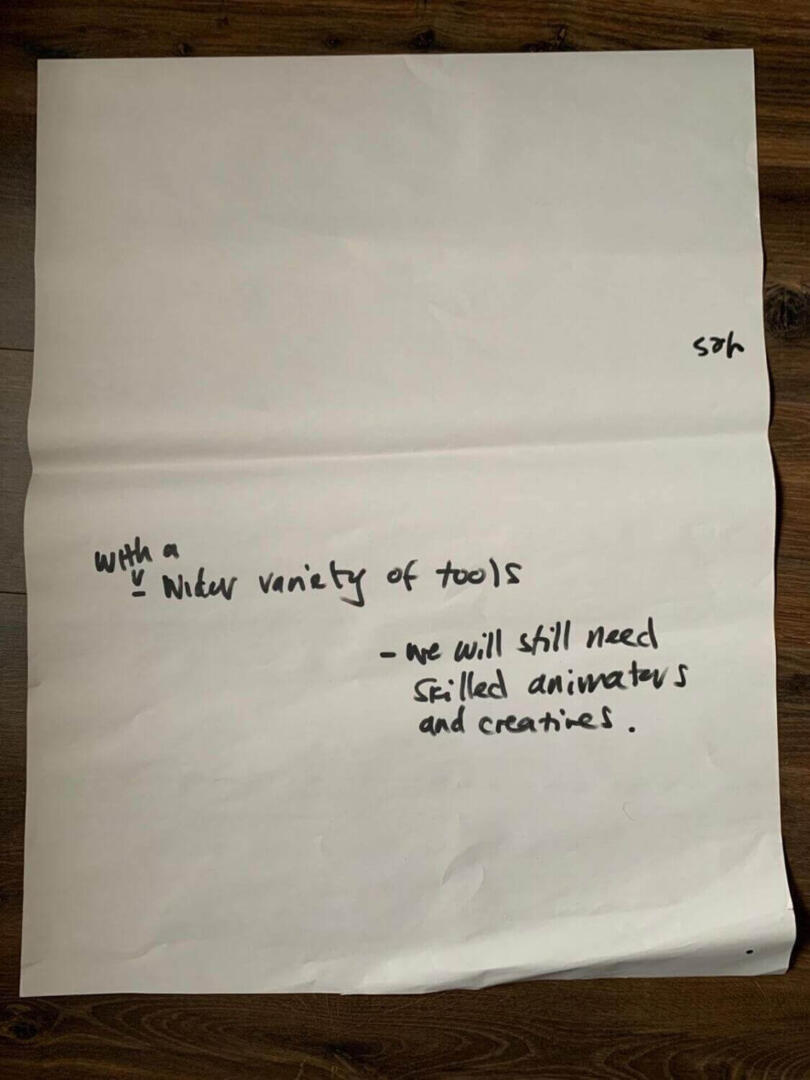 yes
with a
v
- Wider variety of tools
- we will still need
skilled animators
and creatives.